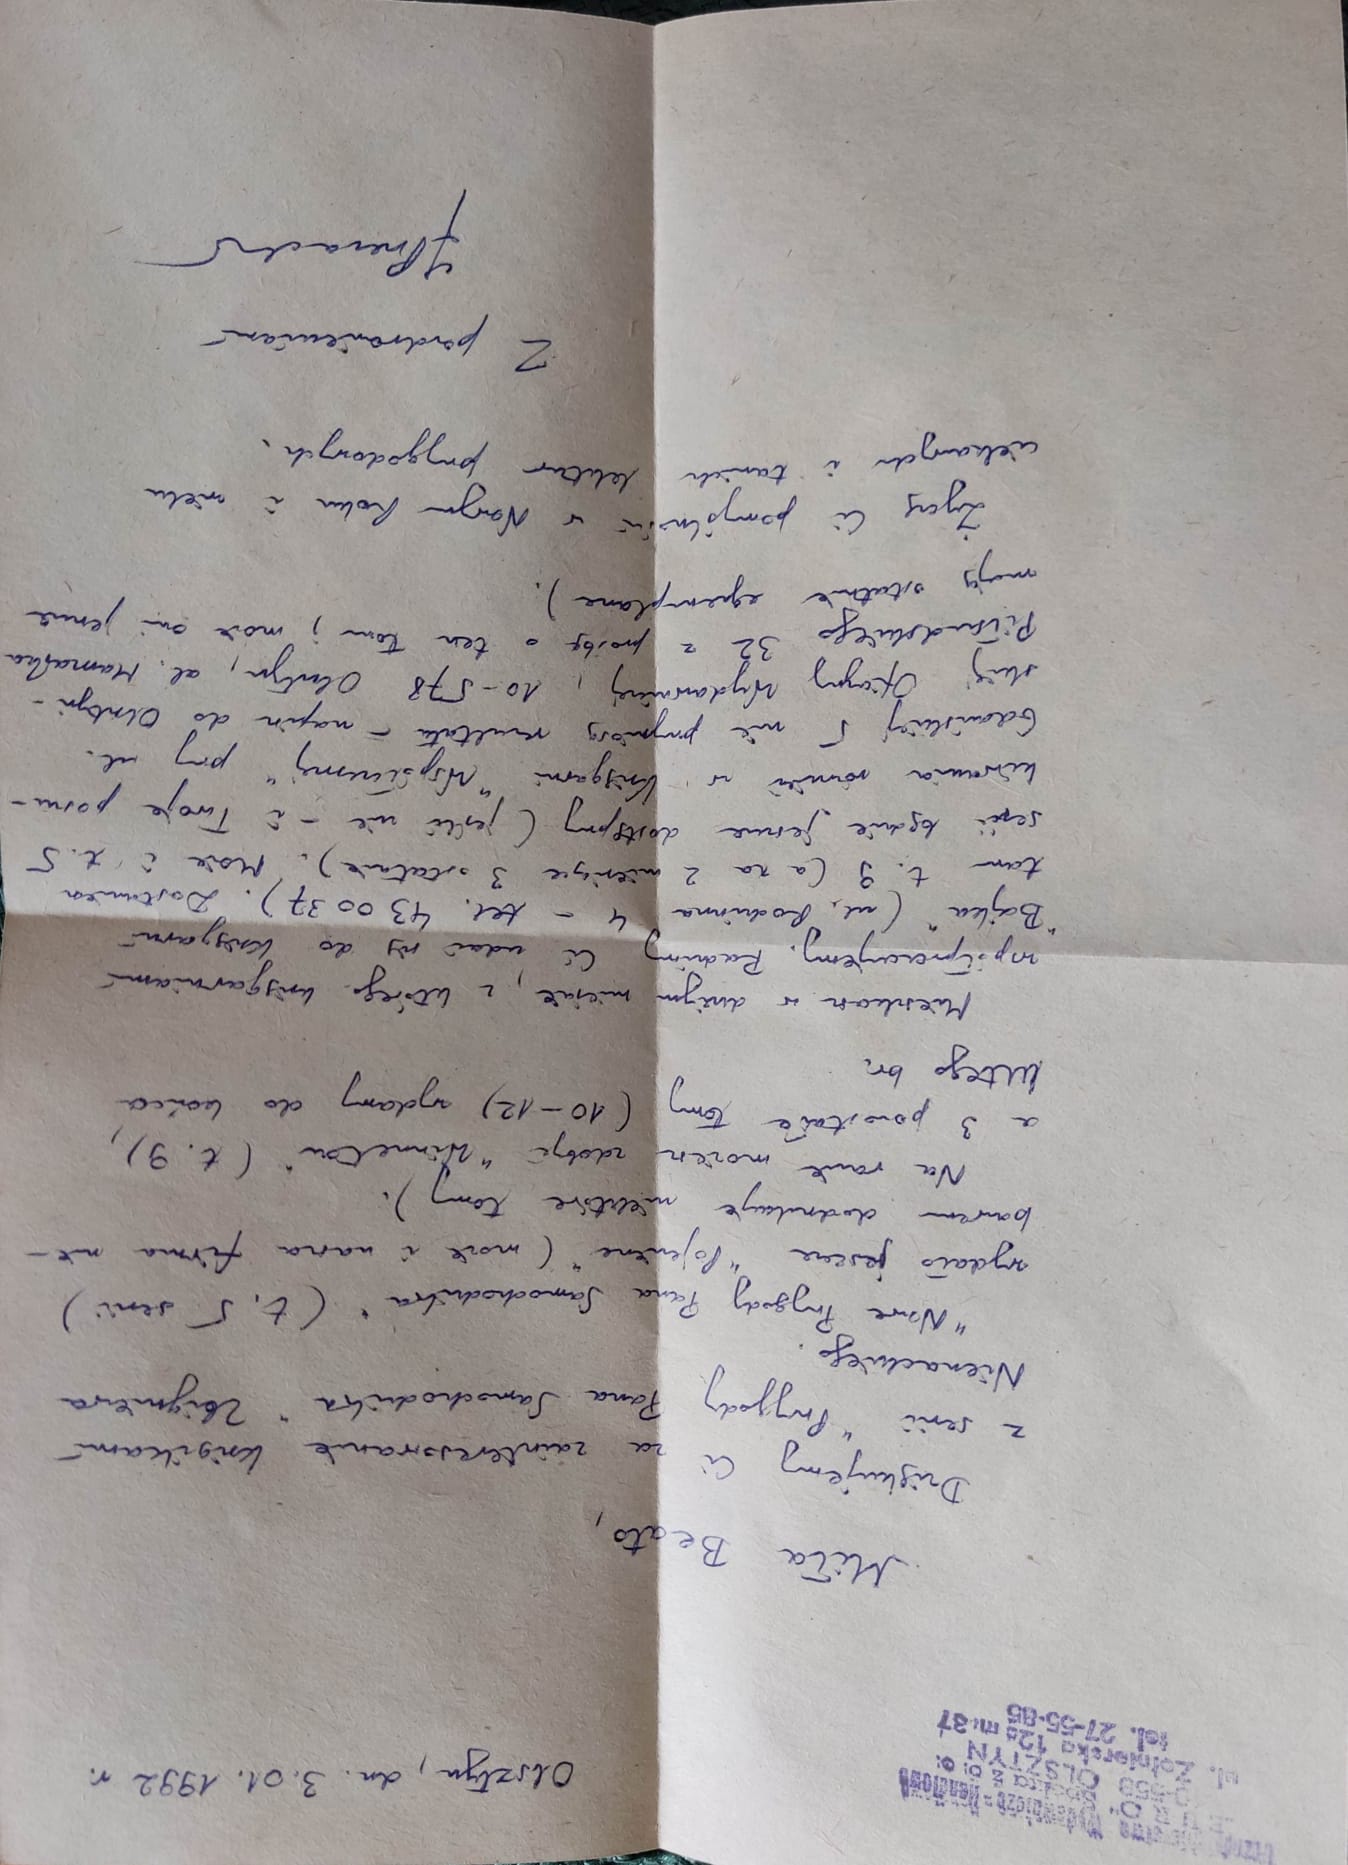 Wydawniczo-Handlowe
"EURO"
Spółka z o.o.
10-558 OLSZTYN
ul. Żołnierska 12a m. 37
tel. 27-55-85
Olsztyn, dn. 3.01.1992 r.
Miła Beato,
Dziękujemy Ci za zainteresowanie książkami
z serii "Przygody Pana Samochodzika" Zbigniewa
Nienackiego.
"Nowe Przygody Pana Samochodzika" (t. 5 serii)
wydało jeszcze "Pojezierze" (może i nasza firma nie-
bawem dodrukuje niektóre tomy).
Na razie możesz zdobyć "Winnetou" (t. 9),
a 3 pozostałe tomy (10-12) wydamy do końca
lutego br.
Mieszkasz w dużym mieście, z którego księgarniami
współpracujemy. Radzimy Ci udać się do księgarni
"Bajka" (ul. Rodzinna 4 - tel. 43 00 37). Dostaniesz
tam t. 9 (a za 2 miesiące 3 ostatnie). Może i t. 5
serii będzie jeszcze dostępny (jeśli nie - i Twoje poszu-
kiwania również w księgarni "Współczesnej" przy ul.
Gdańskiej 5 nie przyniosą rezultatu - napisz do Olsztyń-
skiej Oficyny Wydawniczej, 10-578 Olsztyn, al. Marszałka
Piłsudskiego 32 z prośbą o ten tom; może oni jeszcze
mają ostatnie egzemplarze).
Życzę Ci pomyślności w Nowym Roku i wielu
ciekawych i tanich lektur przygodowych.
Z pozdrowieniami